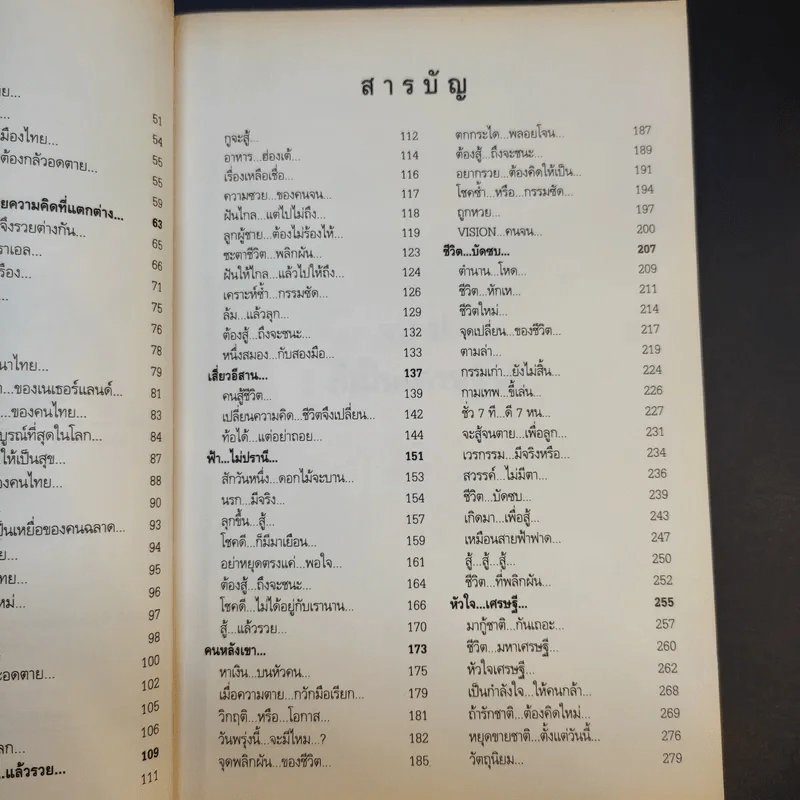 ย...
51
...
54
มืองไทย...
55
ต้องกลัวอดตาย...
55
59
ยความคิดที่แตกต่าง...
63
จึงรวยต่างกัน...
65
ราเอล...
66
รื่อง...
71
...
75
76
78
นาไทย...
79
...ของเนเธอร์แลนด์...
81
...ของคนไทย...
83
บูรณ์ที่สุดในโลก...
84
ให้เป็นสุข...
87
องคนไทย...
88
90
ป็นเหยื่อของคนฉลาด...
93
ย...
94
ทย...
95
หม่...
96
97
98
100
ะอดตาย...
102
105
106
ลก...
109
...แล้วรวย...
111
สารบัญ
กูจะสู้... 112
อาหาร...ฮ่องเต้... 114
เรื่องเหลือเชื่อ... 116
ความซวย...ของคนจน... 117
ฝันไกล...แต่ไปไม่ถึง... 118
ลูกผู้ชาย...ต้องไม่ร้องไห้... 119
ชะตาชีวิต...พลิกผัน... 123
ฝันให้ไกล...แล้วไปให้ถึง... 124
เคราะห์ซ้ำ...กรรมซัด... 126
ล้ม...แล้วลุก... 129
ต้องสู้...ถึงจะชนะ... 132
หนึ่งสมอง...กับสองมือ... 133
เสี่ยวอีสาน... 137
คนสู้ชีวิต... 139
เปลี่ยนความคิด...ชีวิตจึงเปลี่ยน... 142
ท้อได้...แต่อย่าถอย... 144
ฟ้า...ไม่ปรานี... 151
สักวันหนึ่ง...ดอกไม้จะบาน... 153
นรก...มีจริง... 154
ลุกขึ้น...สู้... 157
โชคดี...ก็มีมาเยือน... 159
อย่าหยุดตรงแค่...พอใจ... 161
ต้องสู้...ถึงจะชนะ... 164
โชคดี...ไม่ได้อยู่กับเรานาน... 166
สู้...แล้วรวย... 170
คนหลังเขา... 173
หาเงิน...บนหัวคน... 175
เมื่อความตาย...กวักมือเรียก... 179
วิกฤติ...หรือ...โอกาส... 181
วันพรุ่งนี้...จะมีไหม...? 182
จุดพลิกผัน...ของชีวิต... 185
ตกกระได...พลอยโจน... 187
ต้องสู้...ถึงจะชนะ... 189
อยากรวย...ต้องคิดให้เป็น... 191
โชคซ้ำ...หรือ...กรรมซัด... 194
ถูกหวย... 197
VISION...คนจน... 200
ชีวิต...บัดซบ... 207
ตำนาน...โหด... 209
ชีวิต...หักเห... 211
ชีวิตใหม่... 214
จุดเปลี่ยน...ของชีวิต... 217
ตามล่า... 219
กรรมเก่า...ยังไม่สิ้น... 224
กามเทพ...ขี้เล่น... 226
ชั่ว 7 ที...ดี 7 หน... 227
จะสู้จนตาย...เพื่อลูก... 231
เวรกรรม...มีจริงหรือ... 234
สวรรค์...ไม่มีตา... 236
ชีวิต...บัดซบ... 239
เกิดมา...เพื่อสู้... 243
เหมือนสายฟ้าฟาด... 247
สู้...สู้...สู้... 250
ชีวิต...ที่พลิกผัน... 252
หัวใจ...เศรษฐี... 255
มากู้ชาติ...กันเถอะ... 257
ชีวิต...มหาเศรษฐี... 260
หัวใจเศรษฐี... 262
เป็นกำลังใจ...ให้คนกล้า... 268
ถ้ารักชาติ...ต้องคิดใหม่... 269
หยุดขายชาติ...ตั้งแต่วันนี้... 276
วัตถุนิยม... 279